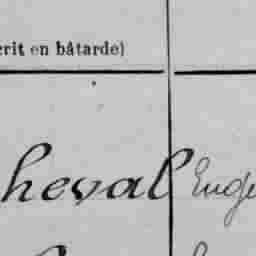 crit en bâtarde)
heval Euge